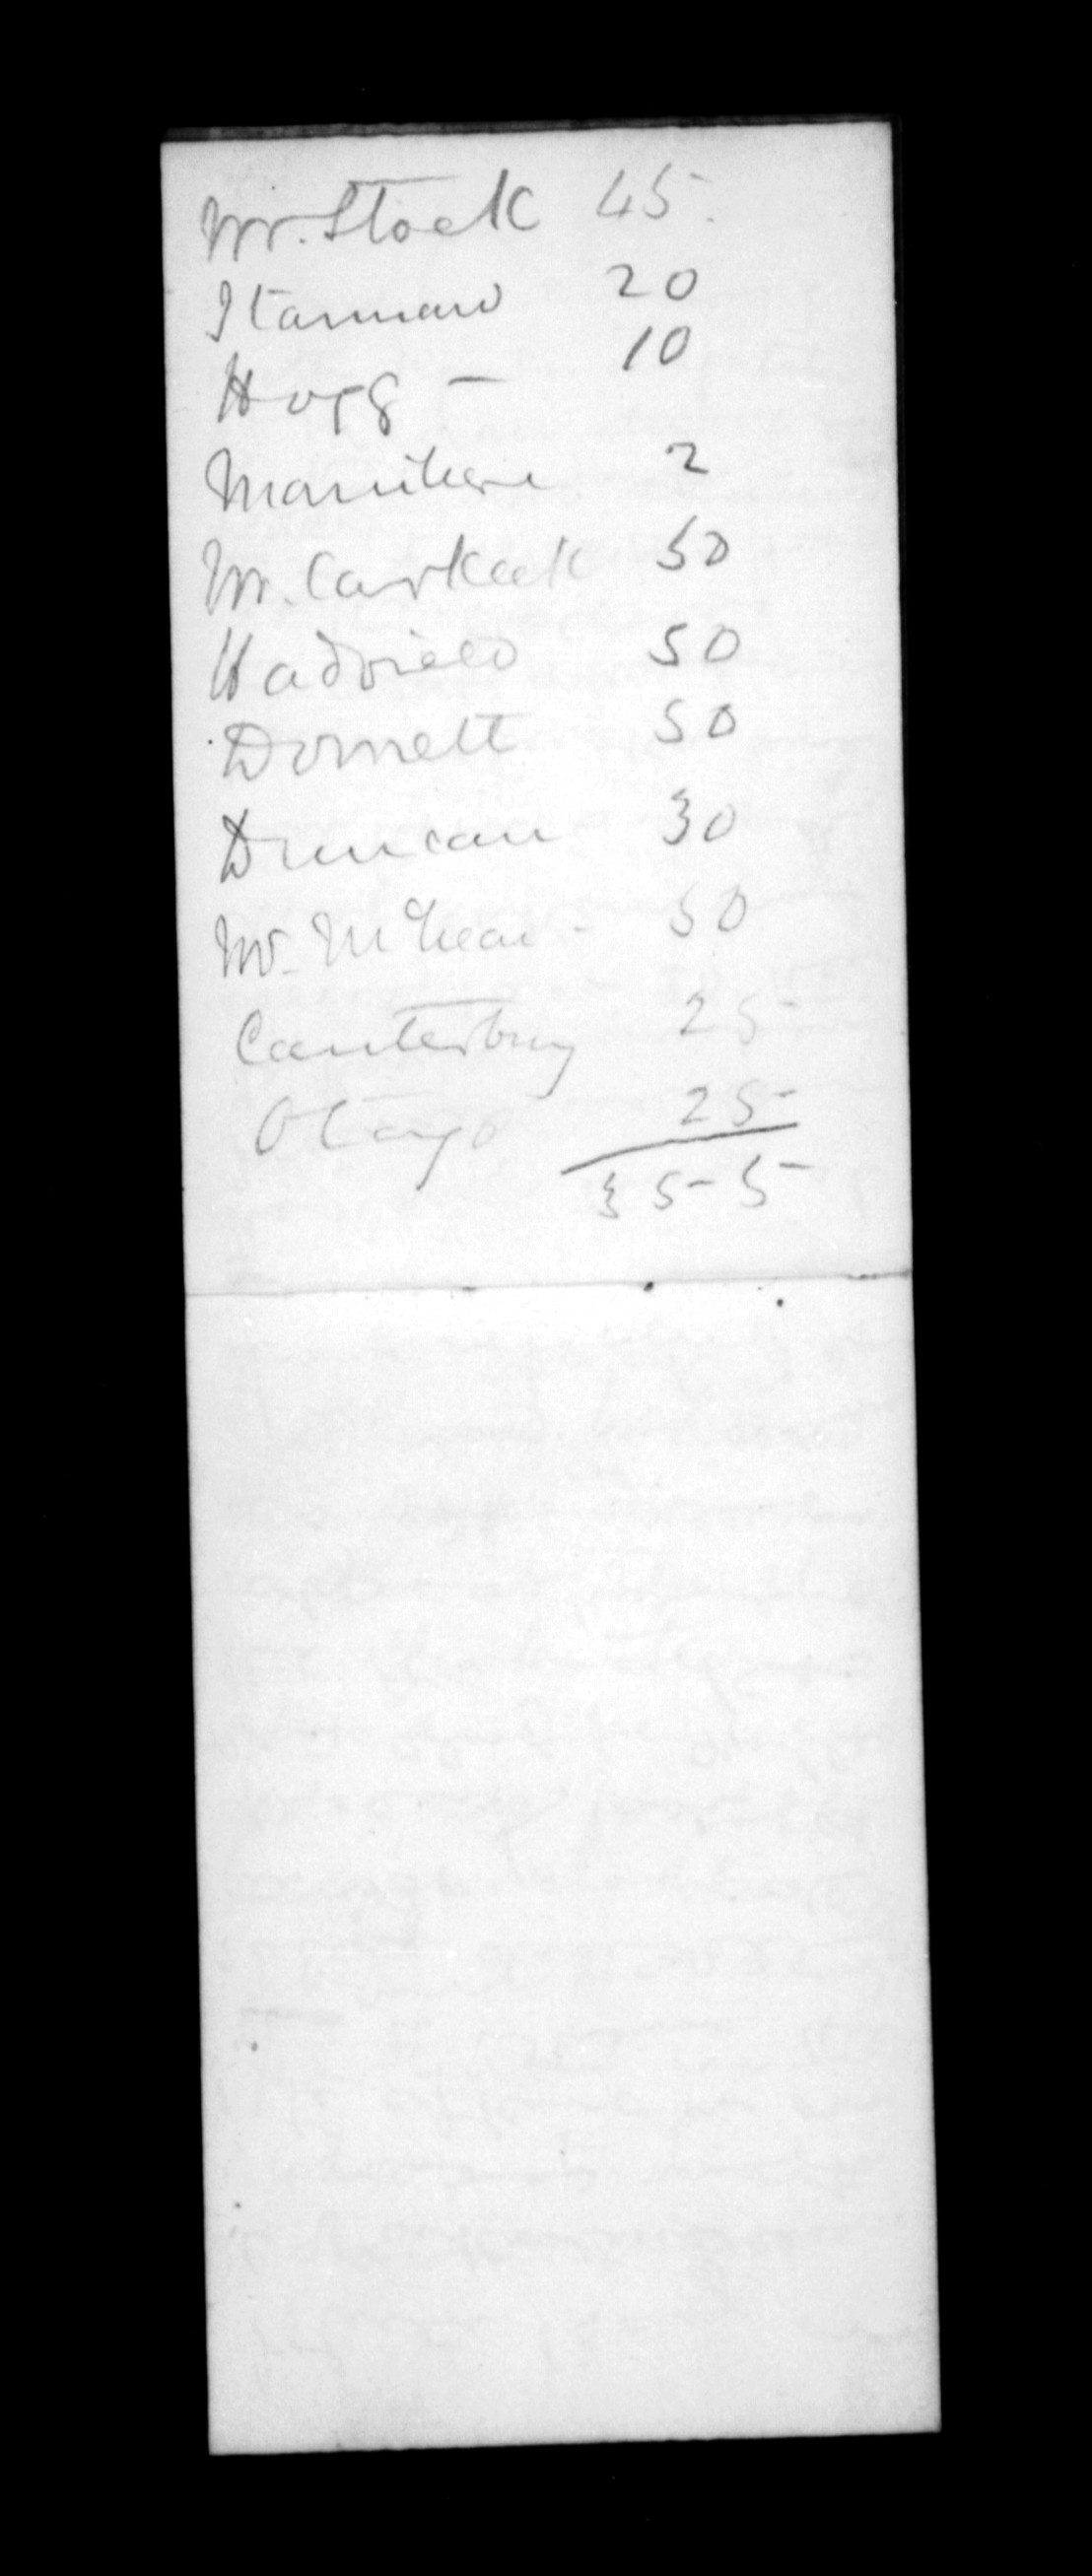 Mr. Stock 45
Stannard 20
Hogg — 10
Manihera 2
Mr. Carkeek 50
Hadfield 50
Domett 50
Duncan 30
Mr. McLean - 50
Canterbury 25
Otago 25
355